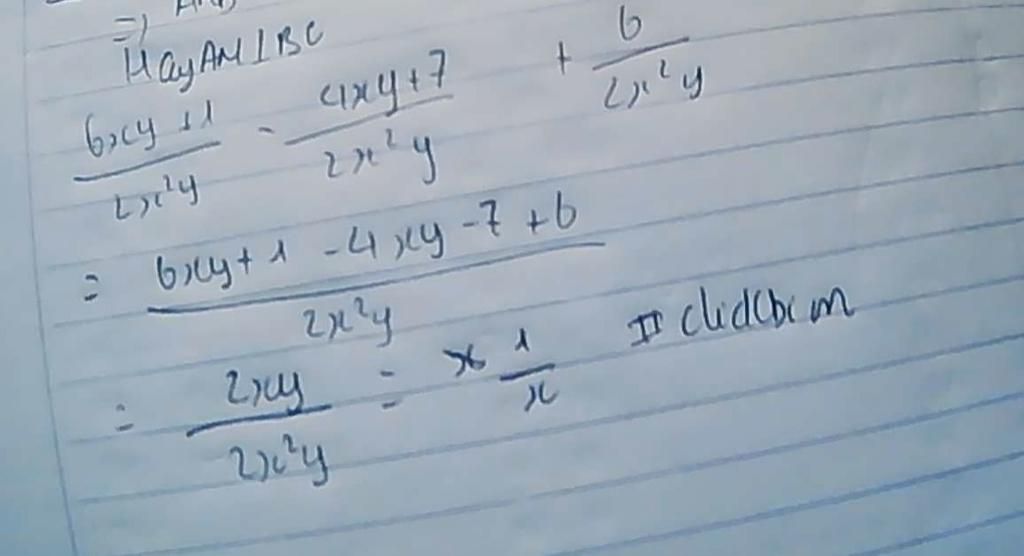 =)
Hay AM ⊥ BC
(6xy + 1)/(2x²y) - (4xy + 7)/(2x²y) + 6/(2x²y)
= (6xy + 1 - 4xy - 7 + 6)/(2x²y)
= (2xy)/(2x²y) = 1/x #